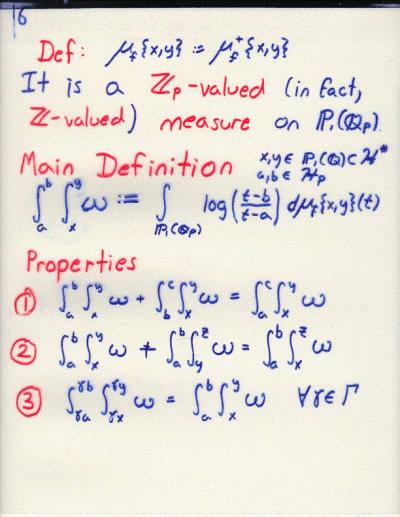 16
Def: μ_f{x,y} := μ_f^+{x,y}
It is a ℤp-valued (in fact,
ℤ-valued) measure on ℙ₁(ℚp).
Main Definition x,y ∈ ℙ₁(ℚ) ⊂ ℋ*
a,b ∈ ℋp
∫_a^b ∫_x^y ω := ∫_{ℙ₁(ℚp)} log((t-b)/(t-a)) dμ_f{x,y}(t)
Properties
① ∫_a^b ∫_x^y ω + ∫_b^c ∫_x^y ω = ∫_a^c ∫_x^y ω
② ∫_a^b ∫_x^y ω + ∫_a^b ∫_y^z ω = ∫_a^b ∫_x^z ω
③ ∫_{γa}^{γb} ∫_{γx}^{γy} ω = ∫_a^b ∫_x^y ω ∀γ∈Γ